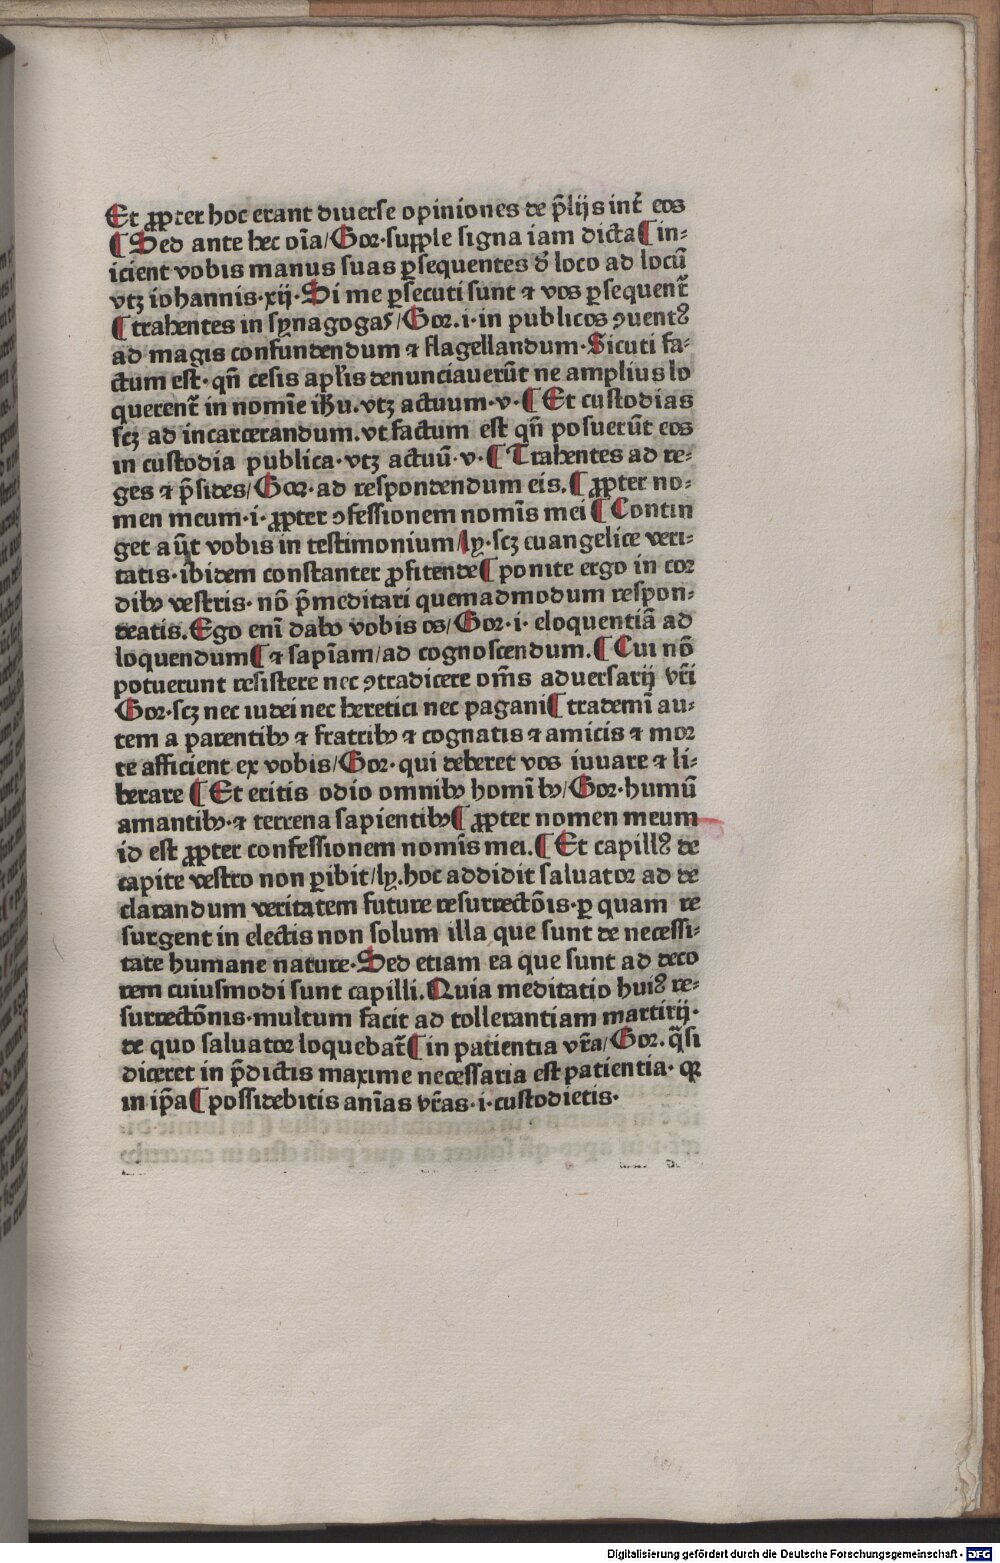 Et ꝓpter hoc erant diuerse opiniones de p̄lijs int̄ eos
¶ Sed ante hec oīa/Gor·supple signa iam dicta¶ in⸗
icient vobis manus suas ꝑsequentes d̄ loco ad locū
vtꝫ iohannis·xij·Si me ꝑsecuti sunt ⁊ vos ꝑsequent̄
¶ trahentes in synagogas/Gor.i·in publicos ꝯuentꝰ
ad magis confundendum ⁊ flagellandum·Sicuti fa⸗
ctum est·qn̄ cesis apl̄is denunciauerūt ne amplius lo
querent̄ in nomīe ih̄u.vtꝫ actuum·v·¶ Et custodias
scꝫ ad incarcerandum.vt factum est qn̄ posuerūt eos
in custodia publica·vtꝫ actuū·v·¶ Trahentes ad re⸗
ges ⁊ p̄sides/Gor·ad respondendum eis.¶ ꝓpter no⸗
men meum·i·ꝓpter ꝯfessionem nomīs mei ¶ Contin
get aūt vobis in testimonium/ly·scꝫ euangelice veri⸗
tatis·ibidem constanter ꝓfitende¶ ponite ergo in cor
dibꝰ vestris·nō p̄meditari quemadmodum respon⸗
deatis.Ego enī dabo vobis os/Gor·i·eloquentiā ad
loquendum¶ ⁊ sapīam/ad cognoscendum.¶ Cui nō
potuerunt resistere nec ꝯtradicere om̄s aduersarij vr̄i
Gor·scꝫ nec iudei nec heretici nec pagani¶ trademī au⸗
tem a parentibꝰ ⁊ fratribꝰ ⁊ cognatis ⁊ amicis ⁊ mor
te afficient ex vobis/Gor·qui deberet vos iuuare ⁊ li⸗
berare ¶ Et eritis odio omnibꝰ homībꝰ/Gor·humū
amantibꝰ·⁊ terrena sapientibꝰ¶ ꝓpter nomen meum
id est ꝓpter confessionem nomīs mei.¶ Et capillꝰ de
capite vestro non ꝑibit/ly.hoc addidit saluator ad de
clarandum veritatem future resurrectōis·ꝑ quam re
surgent in electis non solum illa que sunt de necessi⸗
tate humane nature·Sed etiam ea que sunt ad deco
rem cuiusmodi sunt capilli.Quia meditatio huiꝰ re⸗
surrectōnis·multum facit ad tollerantiam martirij·
de quo saluator loquebat̄¶ in patientia vr̄a/Gor.q̄si
diceret in p̄dictis maxime necessaria est patientia·qꝛ
in ip̄a¶ possidebitis anīas vr̄as·i·custodietis·
Digitalisierung gefördert durch die Deutsche Forschungsgemeinschaft - DFG